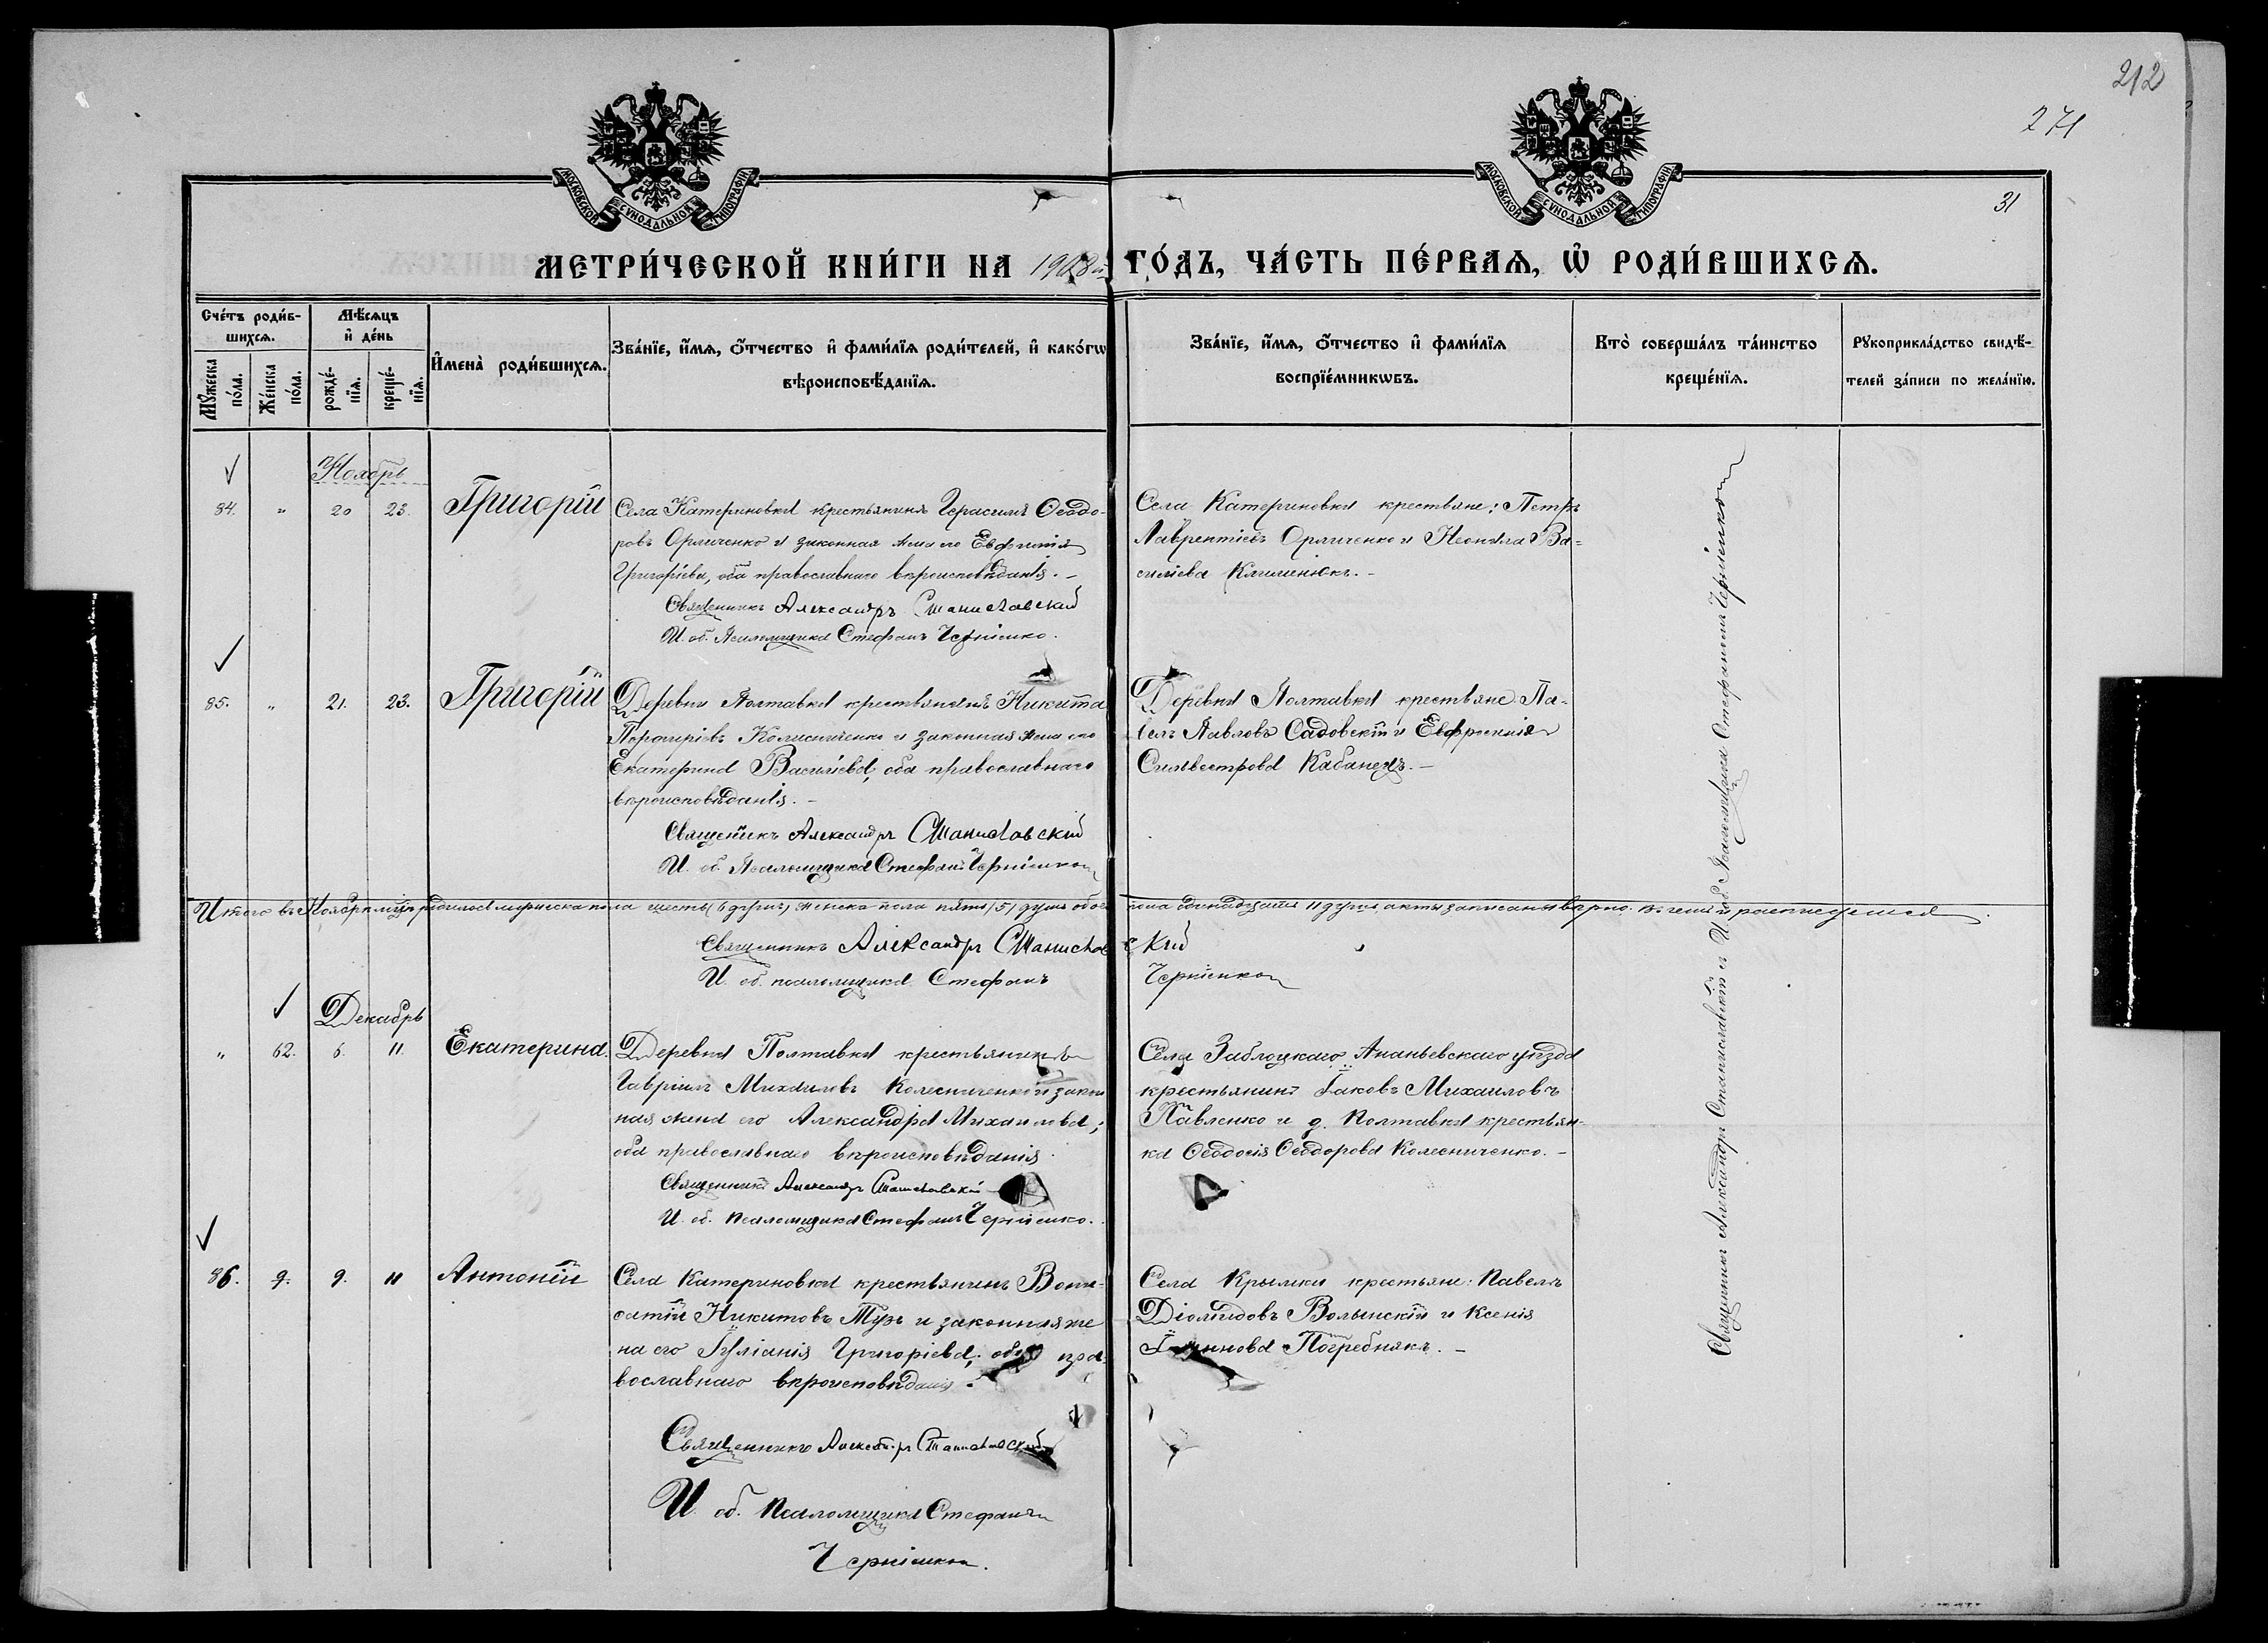 212
271
31
МОСКОВСКОЙ СѴНОДАЛЬНОЙ ТИПОГРАФІИ
МОСКОВСКОЙ СѴНОДАЛЬНОЙ ТИПОГРАФІИ
МЕТРИ́ЧЕСКОЙ КНИ́ГИ НА 1908й ГО́ДЪ, ЧА́СТЬ ПЕ́РВАѦ, Ѡ҆ РОДИ́ВШИХСѦ.
Сче́тъ роди́в-
шихсѧ.
Мꙋ́жеска
по́ла.
Же́нска
по́ла.
Мѣ́сѧцъ
и҆ де́нь
рожде́-
нїѧ.
креще́-
нїѧ.
И҆мена̀ роди́вшихсѧ.
Зва́нїе, и҆́мѧ, ѻ҆́тчество и҆ фами́лїѧ роди́телей, и҆ како́гѡ
вѣроисповѣ́данїѧ.
Зва́нїе, и҆́мѧ, ѻ҆́тчество и҆ фами́лїѧ
воспрїе́мникѡвъ.
Кто̀ соверша́лъ та́инство
креще́нїѧ.
Рꙋкоприкла́дство свидѣ́-
телей за́писи по жела́нїю.
Ноябрь
84. " 20 23. Григорій
Села Катериновки крестьянинъ Герасимъ Ѳеодо-
ровъ Орличенко и законная жена его Евфимія
Григоріева, оба православнаго вѣроисповѣданія. –
Священникъ Александръ Станиславскій
И. об. Псаломщика Стефанъ Чернієнко.
Села Катериновки крестьяне: Петръ
Лаврентіевъ Орличенко и Неонила Ва-
силіева Клименюкъ. –
85. " 21. 23. Григорій
Деревни Полтавки крестьянинъ Никита
Порфиріевъ Колисниченко и законная жена его
Екатерина Василіева, оба православнаго
вѣроисповѣданія. –
Священникъ Александръ Станиславскій
И. об. Псаломщика Стефанъ Чернієнко
Деревни Полтавки крестьяне: Па-
велъ Павловъ Садовскій и Евфросинія
Силвестрова Кабанецъ. –
Итого въ Ноябрѣ мцѣ родилось мужеска пола шесть (6 душъ) женска пола пять (5) душъ обоего пола одинадцать 11 душъ, акты записаны вѣрно.
Священникъ Александръ Станиславскій
И. об. псаломщика Стефанъ Чернієнко
Декабрь
" 62. 6. 11. Екатерина.
Деревни Полтавки крестьянинъ
Гавріилъ Михаиловъ Колесниченко и закон
ная жена его Александра Михаилова;
оба православнаго вѣроисповѣданія.
Священникъ Александръ Станиславскій
И. об. Псаломщика Стефанъ Чернієнко.
Села Заблоцкаго Ананьевскаго уѣзда
крестьянинъ Іаковъ Михаиловъ
Павленко и д. Полтавки крестьян-
ка Ѳеодосія Ѳеодорова Колесниченко. –
86. 9. 9. 11 Антоній
Села Катериновки крестьянинъ Вони-
фатій Никитовъ Тузъ и законная же
на его Іуліанія Григоріева, оба пра-
вославнаго вѣроисповѣданія.
Священникъ Александръ Станиславскій
И. об. Псаломщика Стефанъ
Чернієнко.
Села Крымки крестьяне: Павелъ
Діомидовъ Волынскій и Ксенія
Погребнякъ. –
Священникъ Александръ Станиславскій и И. об. Псаломщика Стефанъ Чернієнко